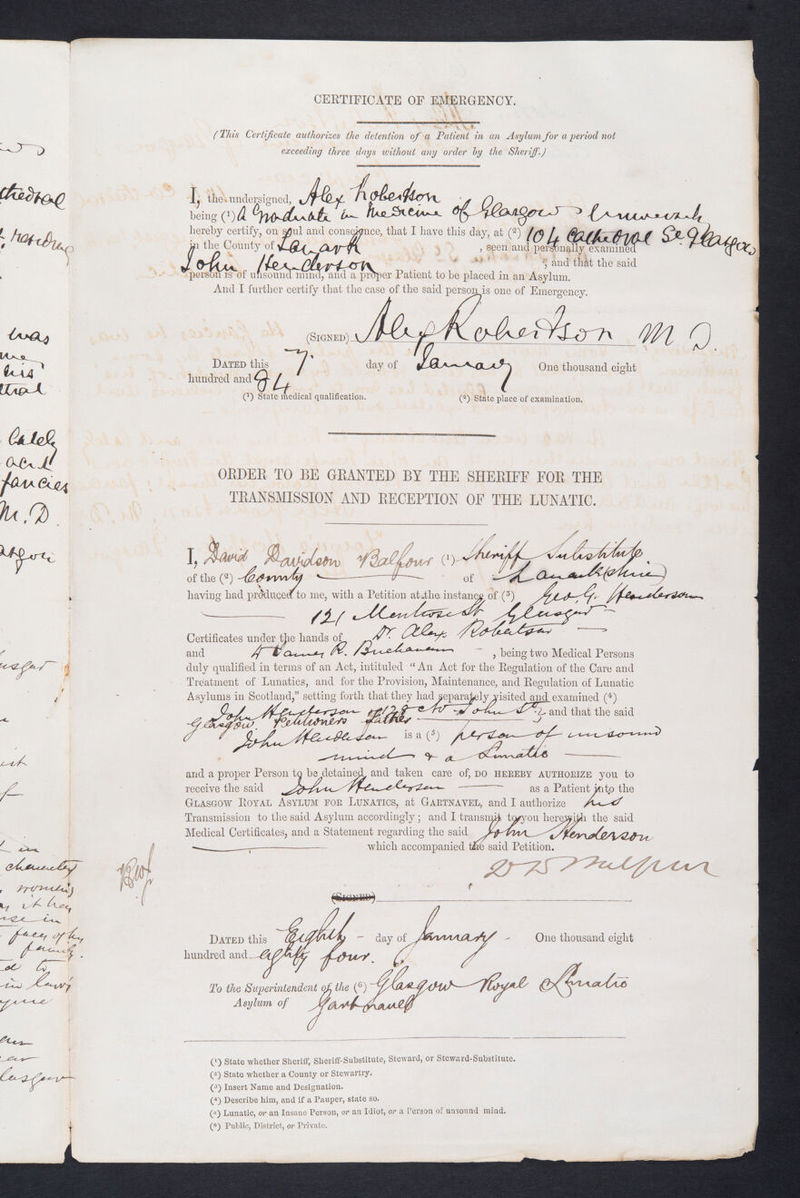 CERTIFICATE OF EMERGENCY.
(This Certificate authorizes the detention of a Patient in an Asylum for a period not
exceeding three days without any order by the Sheriff.)
I, the undersigned, Alex Robertson
being (¹) A Graduate in Medicine of Glasgow University
hereby certify, on soul and conscience, that I have this day, at (²) 104 Cathedral St Glasgow
in the County of Lanark, seen and personally examined
John Henderson; and that the said
person is of unsound mind, and a proper Patient to be placed in an Asylum.
And I further certify that the case of the said person is one of Emergency.
(SIGNED) Alex Robertson M D.
DATED this 7. day of January One thousand eight
hundred and 84
(¹) State medical qualification. (²) State place of examination.
ORDER TO BE GRANTED BY THE SHERIFF FOR THE
TRANSMISSION AND RECEPTION OF THE LUNATIC.
I, David Davidson Balfour (¹) Sheriff Substitute
of the (²) County of Lanarkshire
having had produced to me, with a Petition at the instance of (³) Geo G. Henderson
121 Glasgow
Certificates under the hands of Dr. Alex. Robertson
and James R. Buchanan, being two Medical Persons
duly qualified in terms of an Act, intituled "An Act for the Regulation of the Care and
Treatment of Lunatics, and for the Provision, Maintenance, and Regulation of Lunatic
Asylums in Scotland," setting forth that they had separately visited and examined (⁴)
John Henderson of 128 John St.; and that the said
Glasgow, Petitioners father
John Henderson is a (⁵) person of unsound
mind & a Lunatic
and a proper Person to be detained and taken care of, DO HEREBY AUTHORIZE you to
receive the said John Henderson as a Patient into the
GLASGOW ROYAL ASYLUM FOR LUNATICS, at GARTNAVEL, and I authorize his
Transmission to the said Asylum accordingly; and I transmit to you herewith the said
Medical Certificates, and a Statement regarding the said John Henderson
which accompanied the said Petition.
D D Balfour
(SIGNED)
DATED this Eighth day of January One thousand eight
hundred and eighty four.
To the Superintendent of the (⁶) Glasgow Royal Lunatic
Asylum of Gartnavel
(¹) State whether Sheriff, Sheriff-Substitute, Steward, or Steward-Substitute.
(²) State whether a County or Stewartry.
(³) Insert Name and Designation.
(⁴) Describe him, and if a Pauper, state so.
(⁵) Lunatic, or an Insane Person, or an Idiot, or a Person of unsound mind.
(⁶) Public, District, or Private.
was
his
that
lately
fancies
M.D.